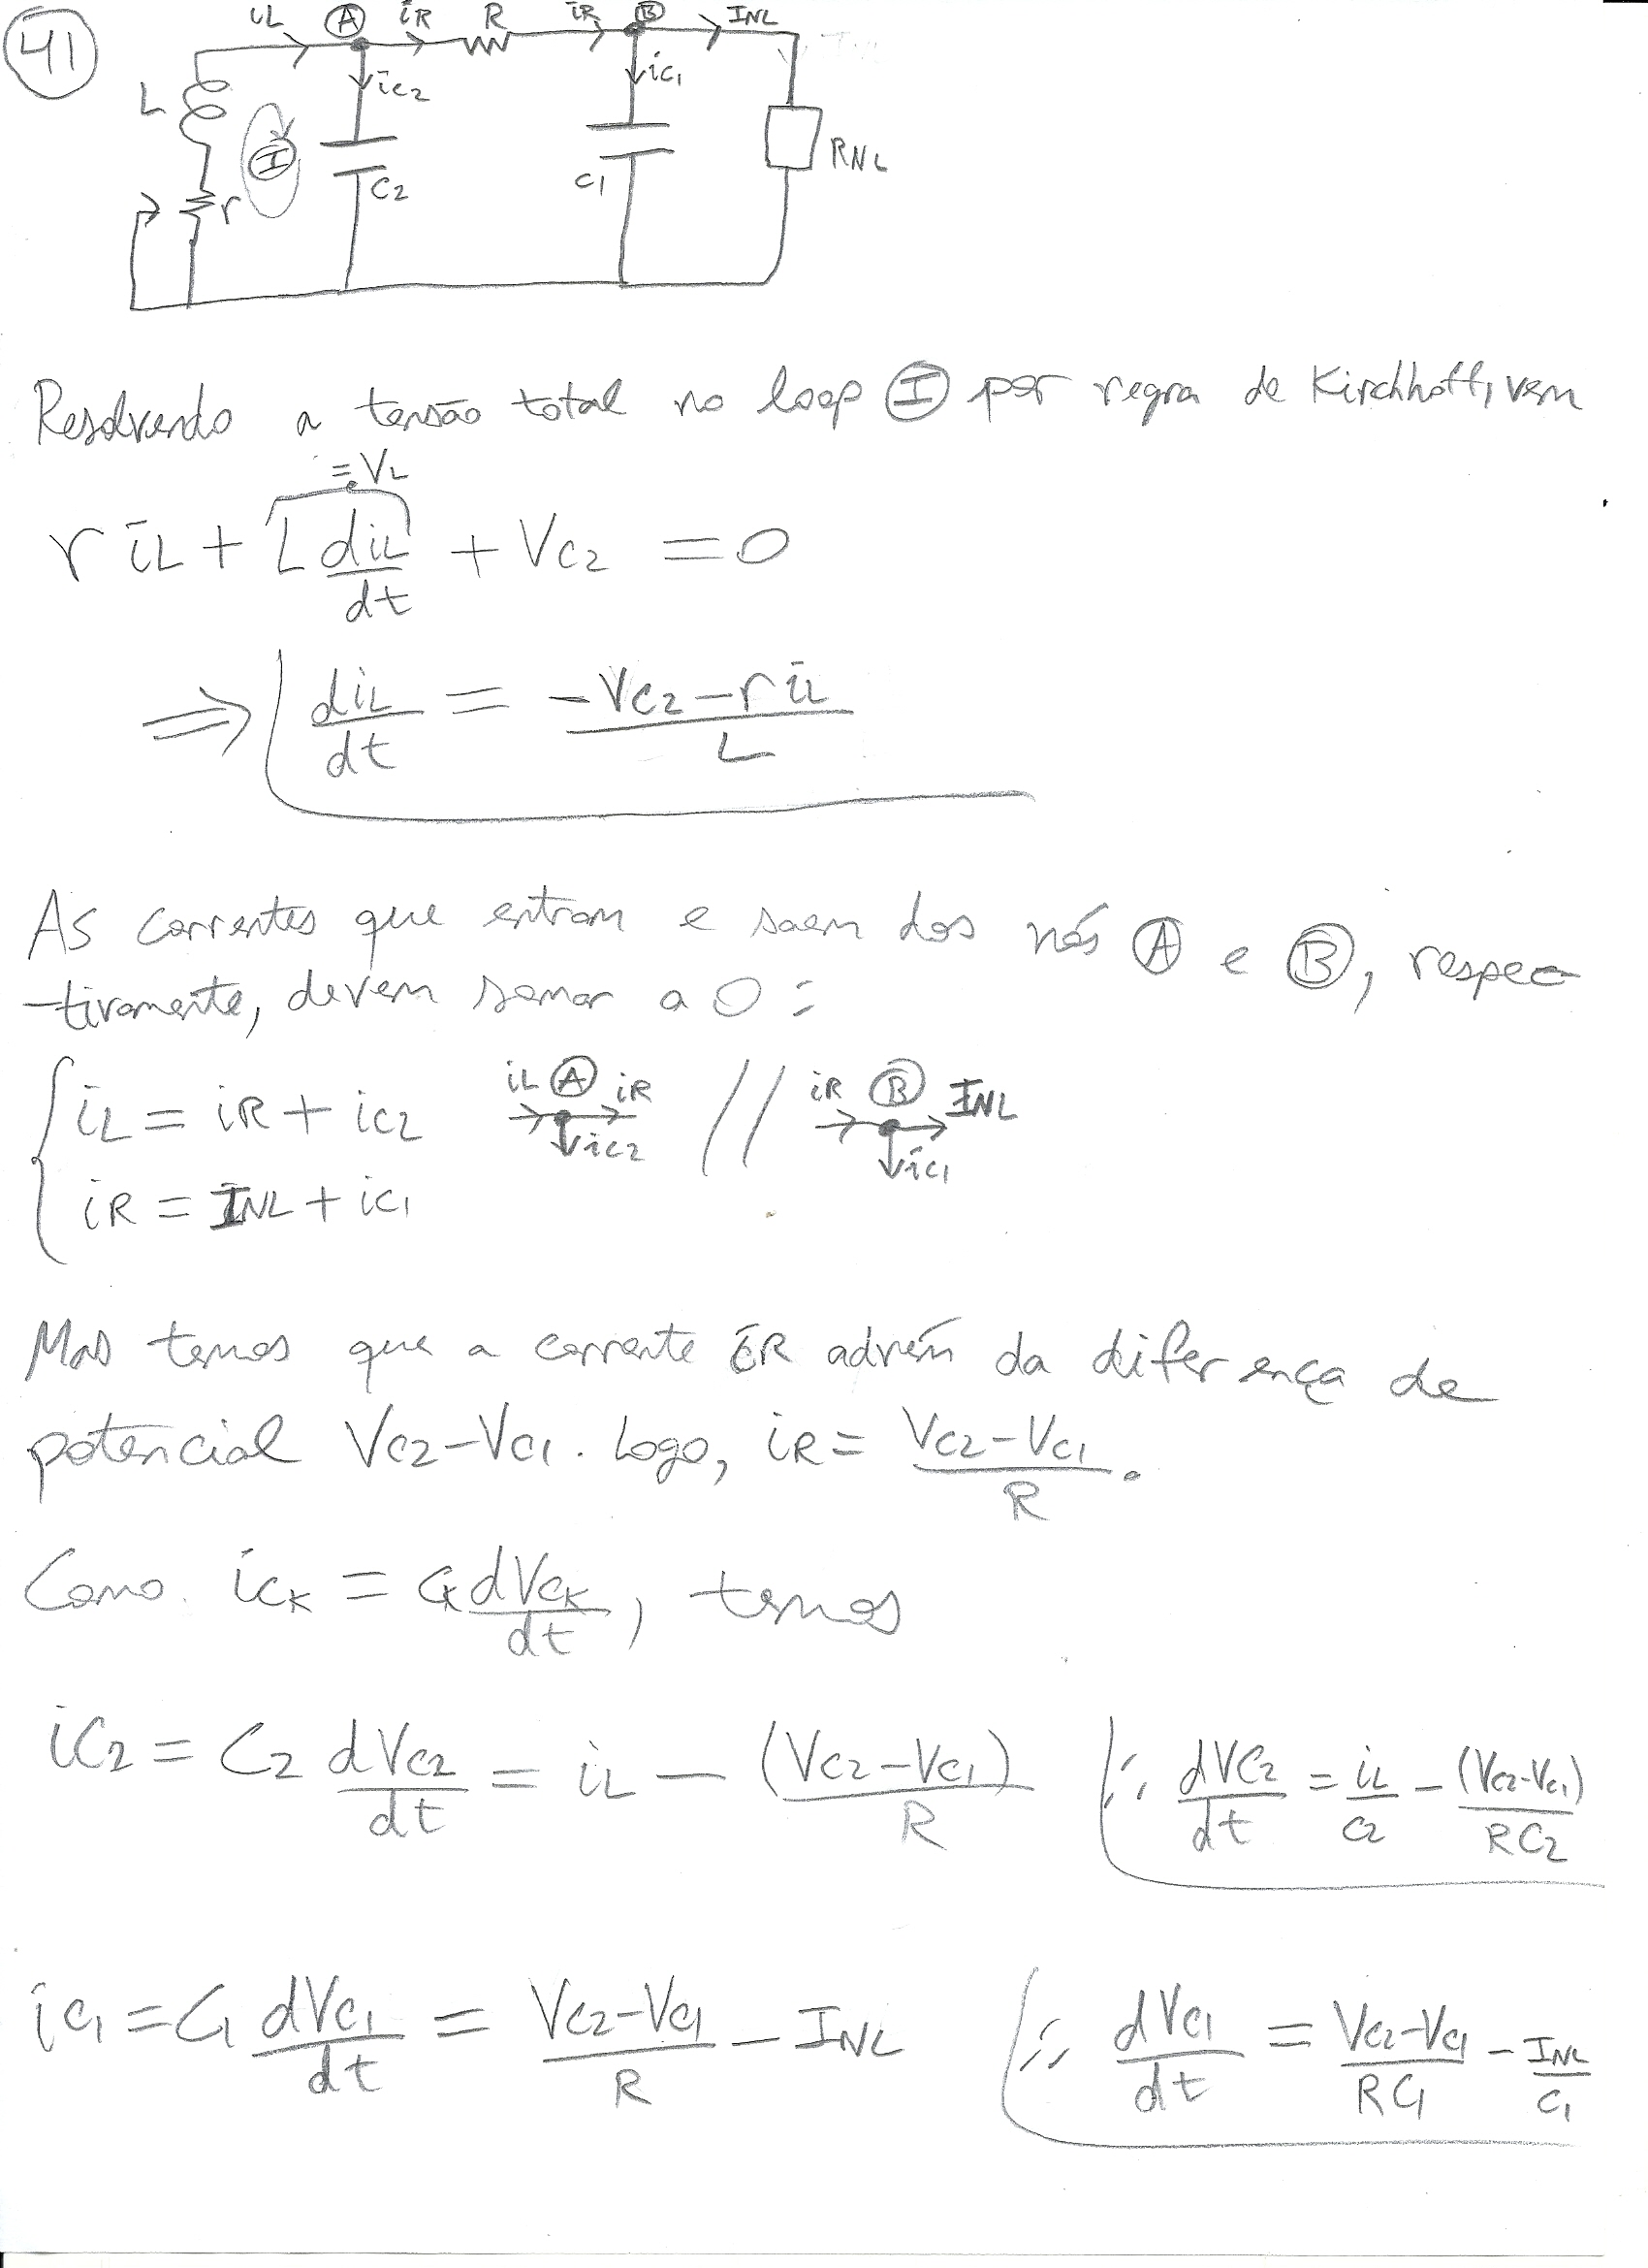 41
iL A iR R iR B INL
iC2 iC1
L I C2 C1 RNL
r
Resolvendo a tensão total no loop I por regra de Kirchhoff, vem
= VL
r iL + L diL/dt + VC2 = 0
⇒ diL/dt = -VC2 - r iL / L
As correntes que entram e saem dos nós A e B, respec
-tivamente, devem somar a 0:
iL = iR + iC2 iL A iR iC2 // iR B INL iC1
iR = INL + iC1
Mas temos que a corrente iR advém da diferença de
potencial VC2-VC1. Logo, iR = VC2-VC1/R.
Como iCK = CK dVCK/dt, temos
iC2 = C2 dVC2/dt = iL - (VC2-VC1)/R ∴ dVC2/dt = iL/C2 - (VC2-VC1)/RC2
iC1 = C1 dVC1/dt = VC2-VC1/R - INL ∴ dVC1/dt = VC2-VC1/RC1 - INL/C1